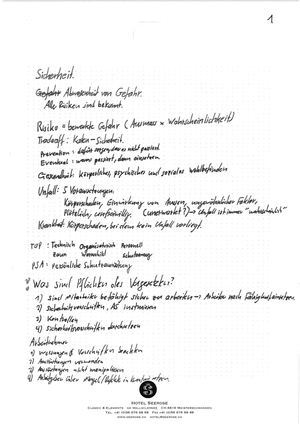 1
Sicherheit
Gefahr Abwesenheit von Gefahr.
Alle Risiken sind bekannt.
Risiko = bewertete Gefahr (Ausmass x Wahrscheinlichkeit)
Tradeoff: Kosten - Sicherheit.
Prävention: dafür sorgen, das es nicht passiert.
Eventual: wenns passiert, dann
Gesundheit: körperliches, psychisches und soziales Wohlbefinden
Unfall: 5 Voraussetzungen.
Körperschaden, Einwirkung von Aussen, ungewöhnlicher Faktor,
Plötzlich, unfreiwillig. Unfall ist immer "wahrscheinlich"
Krankheit: Körperschaden, bei dem kein Unfall vorliegt.
TOP: Technisch Organisatorisch Personell
Zaun Warnschild
PSA: Persönliche Schutzausrüstung
Was sind Pflichten des Vorgesetzten?
1) sind Mitarbeiter befähigt sicher zu arbeiten
2) Sicherheitsvorschriften, AS instruieren
3) Kontrollen
4) Sicherheitsvorschriften durchsetzen
Arbeitnehmer
1) Weisungen & Vorschriften beachten
2) Ausrüstungen verwenden
3) Ausrüstungen nicht manipulieren
4) Arbeitgeber über Mängel/Defekte in Kenntnis setzen.
S
HOTEL SEEROSE
CLASSIC & ELEMENTS AM HALLWILERSEE CH-5616 MEISTERSCHWANDEN